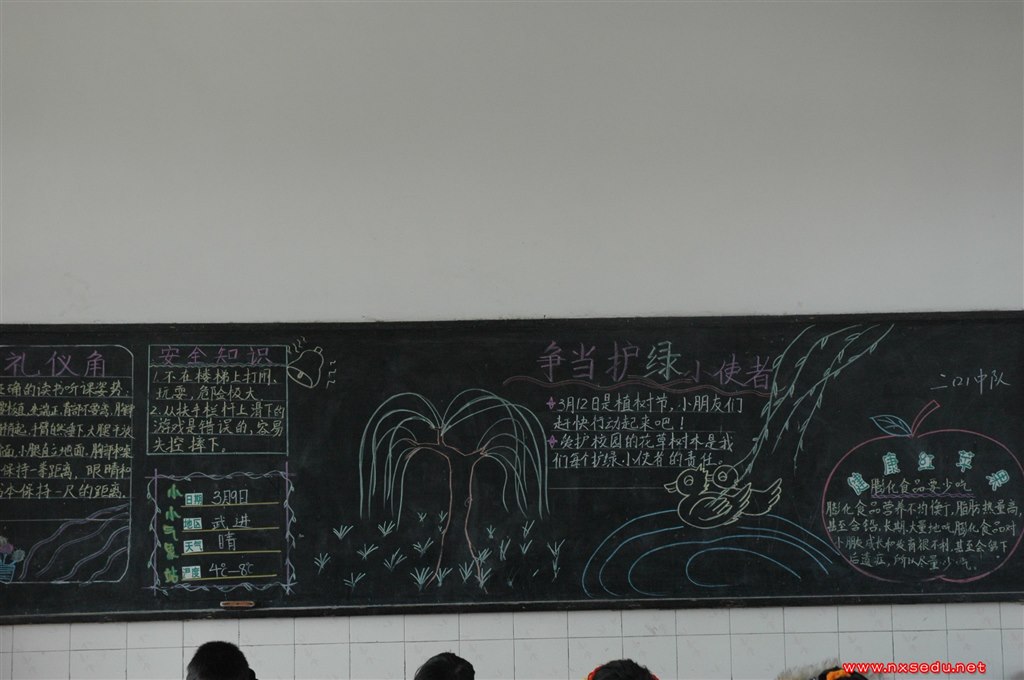 礼仪角
正确的读书听课姿势,
保持一拳距离,眼睛和
书本保持一尺的距离.
安全知识
1.不在楼梯上打闹、
玩耍,危险极大.
2.从扶手栏杆上滑下的
游戏是错误的,容易
失控摔下.
小小气象站
日期 3月9日
地区 武进
天气 晴
温度 4℃-8℃
争当护绿小使者
3月12日是植树节,小朋友们
赶快行动起来吧!
爱护校园的花草树木是我
们每个护绿小使者的责任.
二(2)中队
健康红苹果
膨化食品要少吃
膨化食品营养不均衡,脂肪热量高,
甚至含铅,长期大量地吃膨化食品对
小朋友成长和发育很不利,甚至会留下
后遗症,所以尽量少吃.
www.nxsedu.net